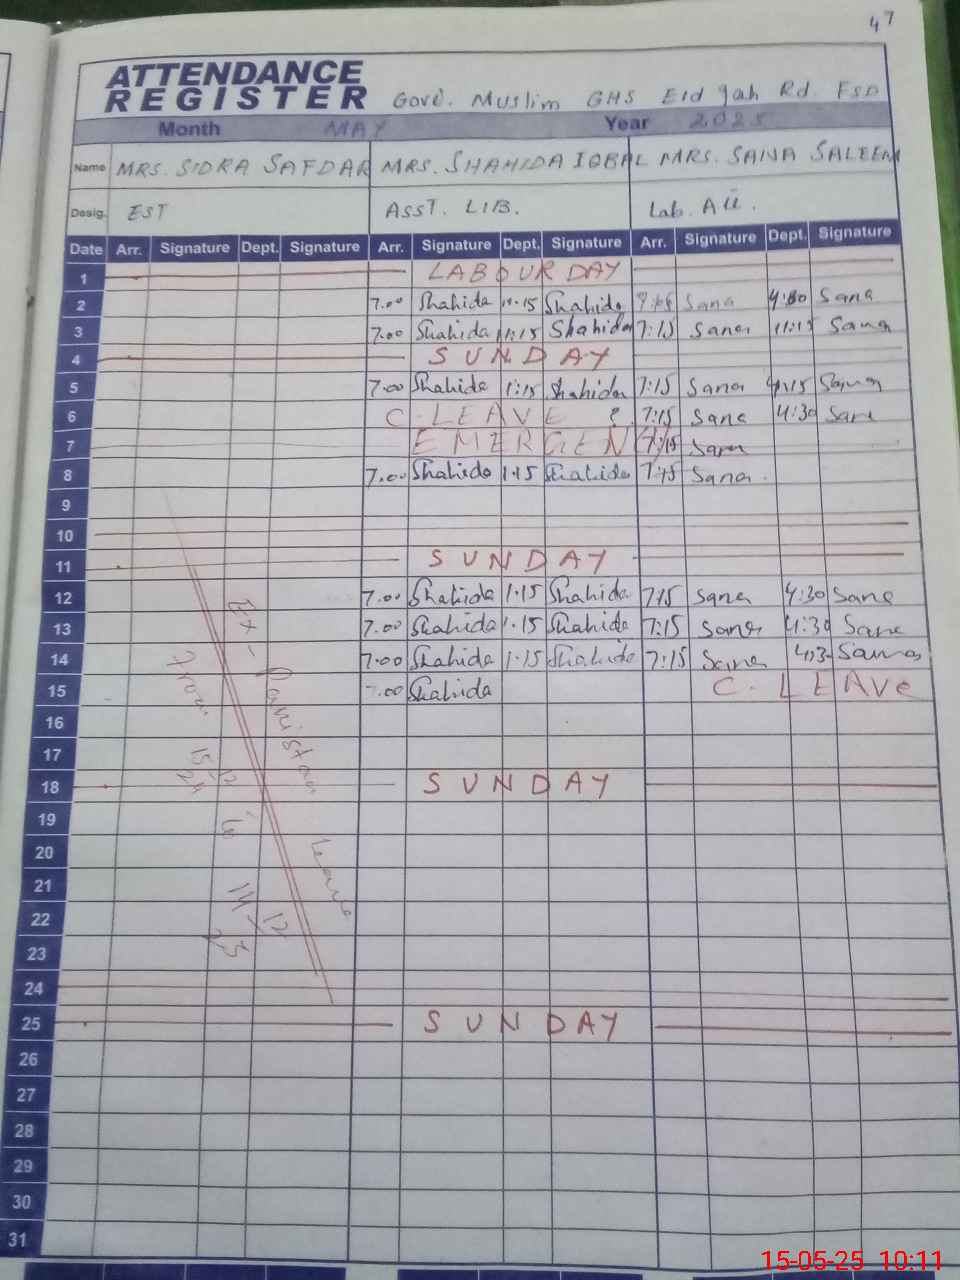 47
ATTENDANCE
REGISTER Govt. Muslim GHS Eid gah Rd. FSD
Month MAY Year 2025
Name MRS. SIDRA SAFDAR MRS. SHAHIDA IQBAL MRS. SANA SALEEM
Desig. EST ASST. LIB. Lab. Att.
Date Arr. Signature Dept. Signature Arr. Signature Dept. Signature Arr. Signature Dept. Signature
1 LABOUR DAY
2 7.00 Shahida 11.15 Shahida Sana 4:30 Sana
3 7.00 Shahida 11:15 Shahida 7:15 Sana 11:15 Sana
4 SUNDAY
5 7.00 Shahida 1:15 Shahida 7:15 Sana 4:15 Sana
6 C. LEAVE 7:15 Sana 4:30 Sana
7 EMERGEN 7:15 Sana
8 7.00 Shahida 1.15 Shahida 7:15 Sana
9
10
11 SUNDAY
12 7.00 Shahida 1.15 Shahida 7:15 Sana 4:30 Sana
13 7.00 Shahida 1.15 Shahida 7:15 Sana 4:30 Sana
14 7.00 Shahida 1.15 Shahida 7:15 Sana 4:3 Sana
15 7.00 Shahida C. LEAVE
16
17
18 SUNDAY
19
20
21
22
23
24
25 SUNDAY
26
27
28
29
30
31
Ex-Pakistan Leave
From 15-12-24 to 14-12
15-05-25 10:11